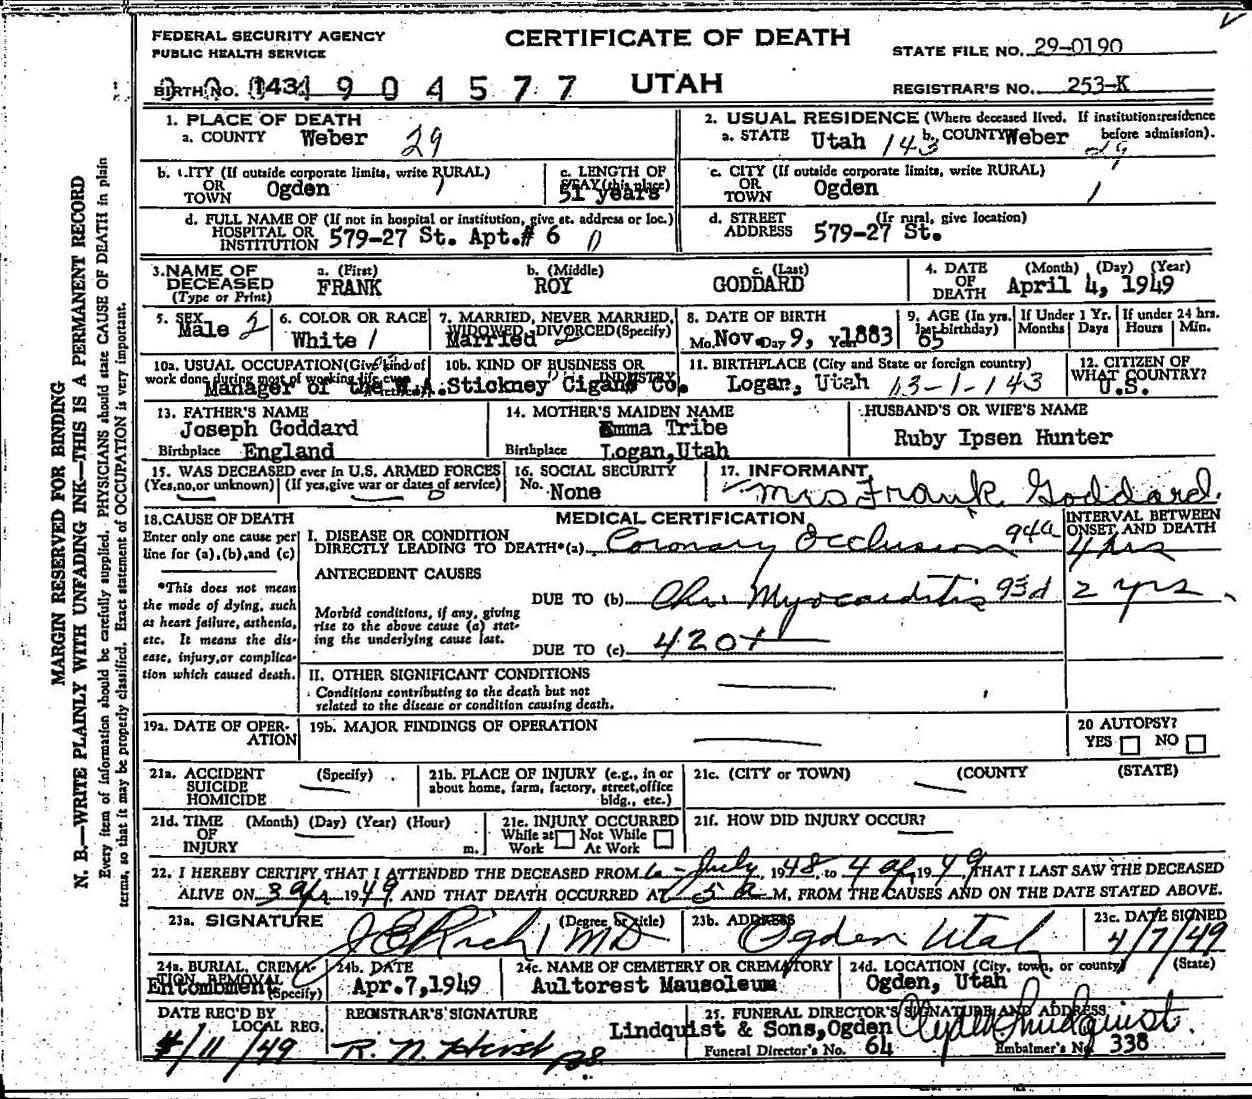 FEDERAL SECURITY AGENCY
PUBLIC HEALTH SERVICE
CERTIFICATE OF DEATH
UTAH
STATE FILE NO. 29-0190
BIRTH NO. 1904577
REGISTRAR'S NO. 253-K
MARGIN RESERVED FOR BINDING
N. B.—WRITE PLAINLY WITH UNFADING INK—THIS IS A PERMANENT RECORD
Every item of information should be carefully supplied. PHYSICIANS should state CAUSE OF DEATH in plain
terms, so that it may be properly classified. Exact statement of OCCUPATION is very important.
1. PLACE OF DEATH
a. COUNTY Weber 29
2. USUAL RESIDENCE (Where deceased lived. If institution:residence before admission).
a. STATE Utah 143 b. COUNTY Weber 29
b. CITY (If outside corporate limits, write RURAL)
OR TOWN Ogden 1
c. LENGTH OF STAY (this place)
51 years
c. CITY (If outside corporate limits, write RURAL)
OR TOWN Ogden 1
d. FULL NAME OF (If not in hospital or institution, give st. address or loc.)
HOSPITAL OR INSTITUTION 579-27 St. Apt.# 6 0
d. STREET ADDRESS (If rural, give location)
579-27 St.
3. NAME OF DECEASED (Type or Print)
a. (First) FRANK
b. (Middle) ROY
c. (Last) GODDARD
4. DATE OF DEATH (Month) (Day) (Year)
April 4, 1949
5. SEX
Male 2
6. COLOR OR RACE
White 1
7. MARRIED, NEVER MARRIED, WIDOWED, DIVORCED (Specify)
Married 2
8. DATE OF BIRTH
Mo. Nov. Day 9, Yr. 1883
9. AGE (In yrs. last birthday)
65
If Under 1 Yr. Months Days
If under 24 hrs. Hours Min.
10a. USUAL OCCUPATION (Give kind of work done during most of working life
10b. KIND OF BUSINESS OR INDUSTRY
Manager of the W.A.Stickney Cigar Co.
11. BIRTHPLACE (City and State or foreign country)
Logan, Utah 13-1-143
12. CITIZEN OF WHAT COUNTRY?
U.S.
13. FATHER'S NAME
Joseph Goddard
Birthplace England
14. MOTHER'S MAIDEN NAME
Emma Tribe
Birthplace Logan, Utah
HUSBAND'S OR WIFE'S NAME
Ruby Ipsen Hunter
15. WAS DECEASED ever in U.S. ARMED FORCES
(Yes, no, or unknown) (If yes, give war or dates of service)
16. SOCIAL SECURITY
No. None
17. INFORMANT
Mrs Frank Goddard.
18. CAUSE OF DEATH
Enter only one cause per line for (a), (b), and (c)
*This does not mean the mode of dying, such as heart failure, asthenia, etc. It means the disease, injury, or complication which caused death.
MEDICAL CERTIFICATION
INTERVAL BETWEEN ONSET AND DEATH
I. DISEASE OR CONDITION
DIRECTLY LEADING TO DEATH*(a) Coronary Occlusion 94a 4 hrs
ANTECEDENT CAUSES
Morbid conditions, if any, giving rise to the above cause (a) stating the underlying cause last.
DUE TO (b) Chr. Myocarditis 93d 2 yrs
DUE TO (c) 420+
II. OTHER SIGNIFICANT CONDITIONS
Conditions contributing to the death but not
related to the disease or condition causing death.
19a. DATE OF OPERATION
19b. MAJOR FINDINGS OF OPERATION
20 AUTOPSY?
YES NO
21a. ACCIDENT SUICIDE HOMICIDE (Specify)
21b. PLACE OF INJURY (e.g., in or about home, farm, factory, street, office bldg., etc.)
21c. (CITY or TOWN) (COUNTY (STATE)
21d. TIME OF INJURY (Month) (Day) (Year) (Hour) m.
21e. INJURY OCCURRED
While at Work Not While At Work
21f. HOW DID INJURY OCCUR?
22. I HEREBY CERTIFY THAT I ATTENDED THE DECEASED FROM 6- July, 1948, to 4 Ap, 1949, THAT I LAST SAW THE DECEASED
ALIVE ON 3 Apr 1949 AND THAT DEATH OCCURRED AT 5 a M. FROM THE CAUSES AND ON THE DATE STATED ABOVE.
23a. SIGNATURE (Degree or title)
J E Rich MD
23b. ADDRESS
Ogden Utah
23c. DATE SIGNED
4/7/49
24a. BURIAL, CREMATION, REMOVAL (Specify)
Entombment
24b. DATE
Apr.7,1949
24c. NAME OF CEMETERY OR CREMATORY
Aultorest Mausoleum
24d. LOCATION (City, town, or county) (State)
Ogden, Utah
DATE REC'D BY LOCAL REG.
4/11/49
REGISTRAR'S SIGNATURE
R. N. Hirst
25. FUNERAL DIRECTOR'S SIGNATURE AND ADDRESS
Lindquist & Sons, Ogden Clyde Lindquist.
Funeral Director's No. 64 Embalmer's No. 338